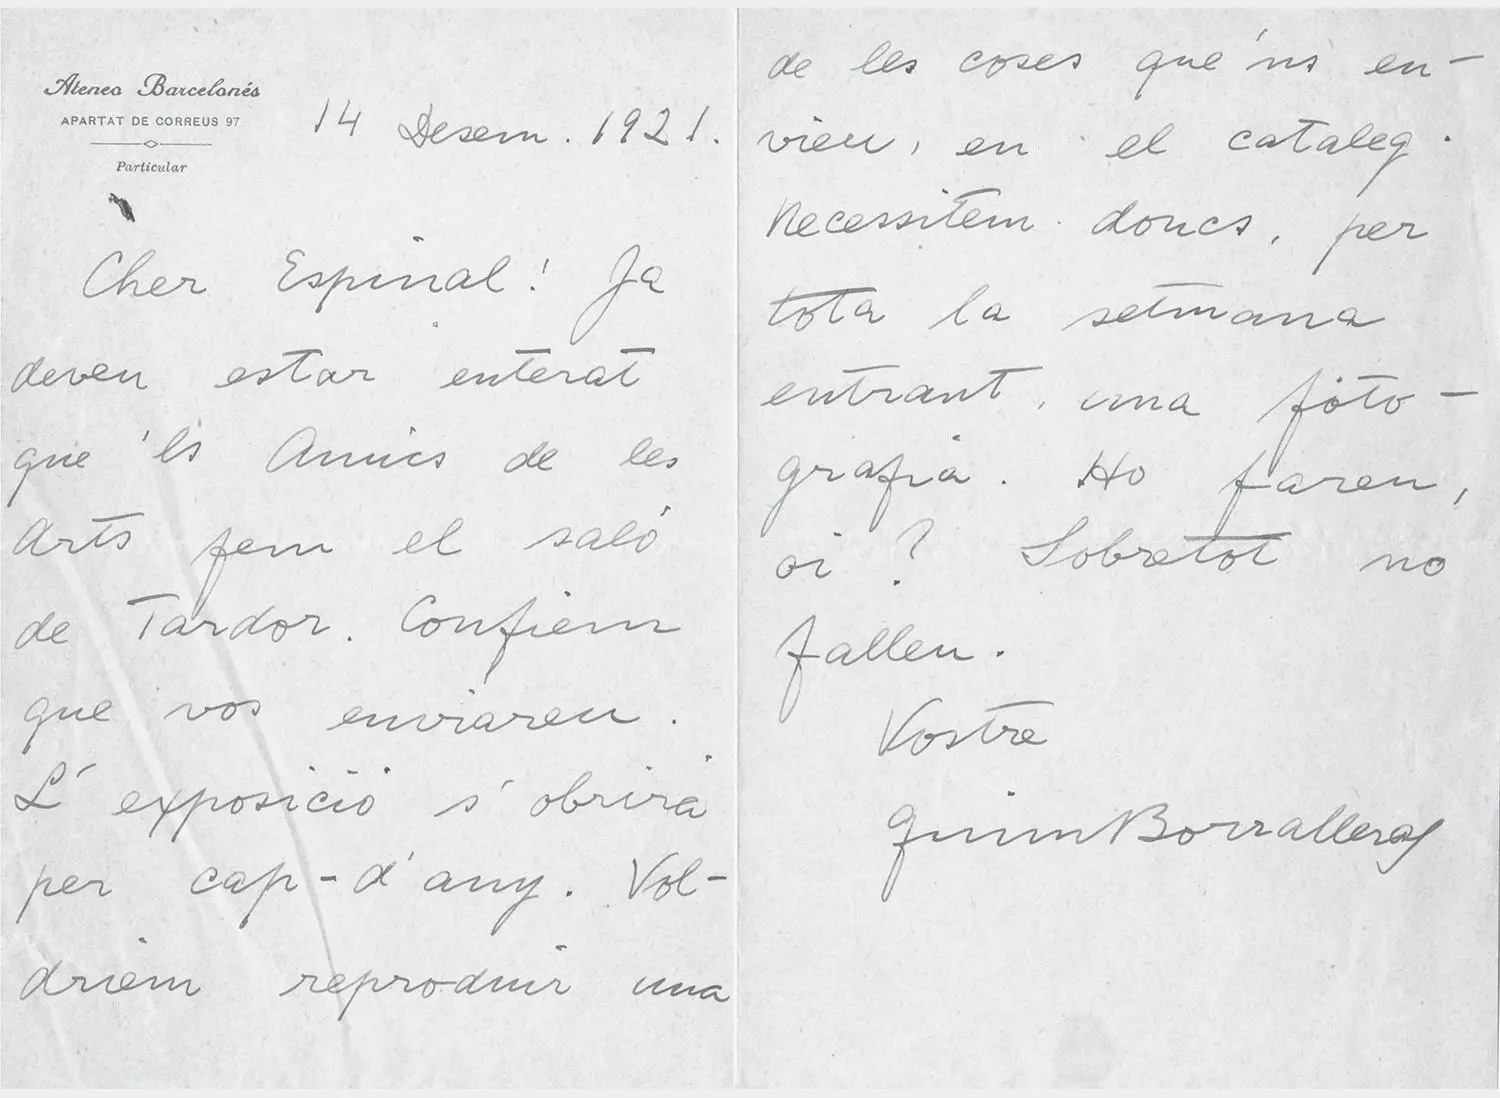 Ateneo Barcelonés
APARTAT DE CORREUS 97
Particular
14 Desem. 1921.
Cher Espinal! Ja
deven estar enterat
que 'ls Amics de les
Arts fem el saló
de Tardor. Confiem
que vos enviareu.
L'exposició s'obrirà
per cap-d'any. Vol-
driem reproduir una
de les coses que'ns en-
vieu, en el cataleg.
Necessitem doncs, per
tota la setmana
entrant, una foto-
grafia. Ho fareu,
oi? Sobretot no
falleu.
Vostre
Quim Borralleras